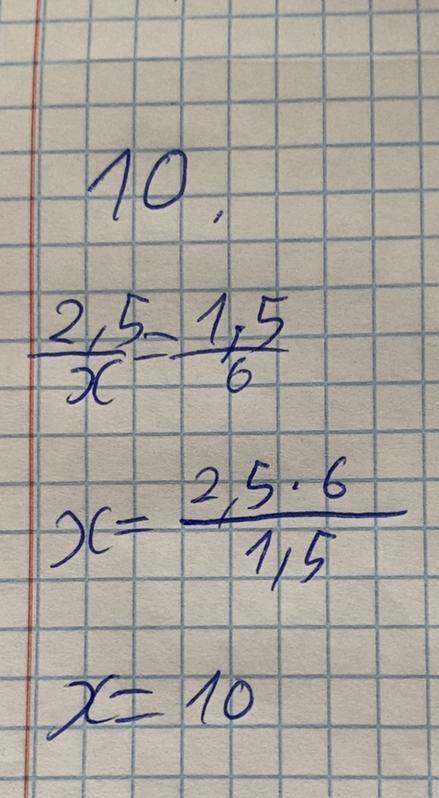 10.
2,5/x = 1,5/6
x = 2,5 · 6/1,5
x = 10